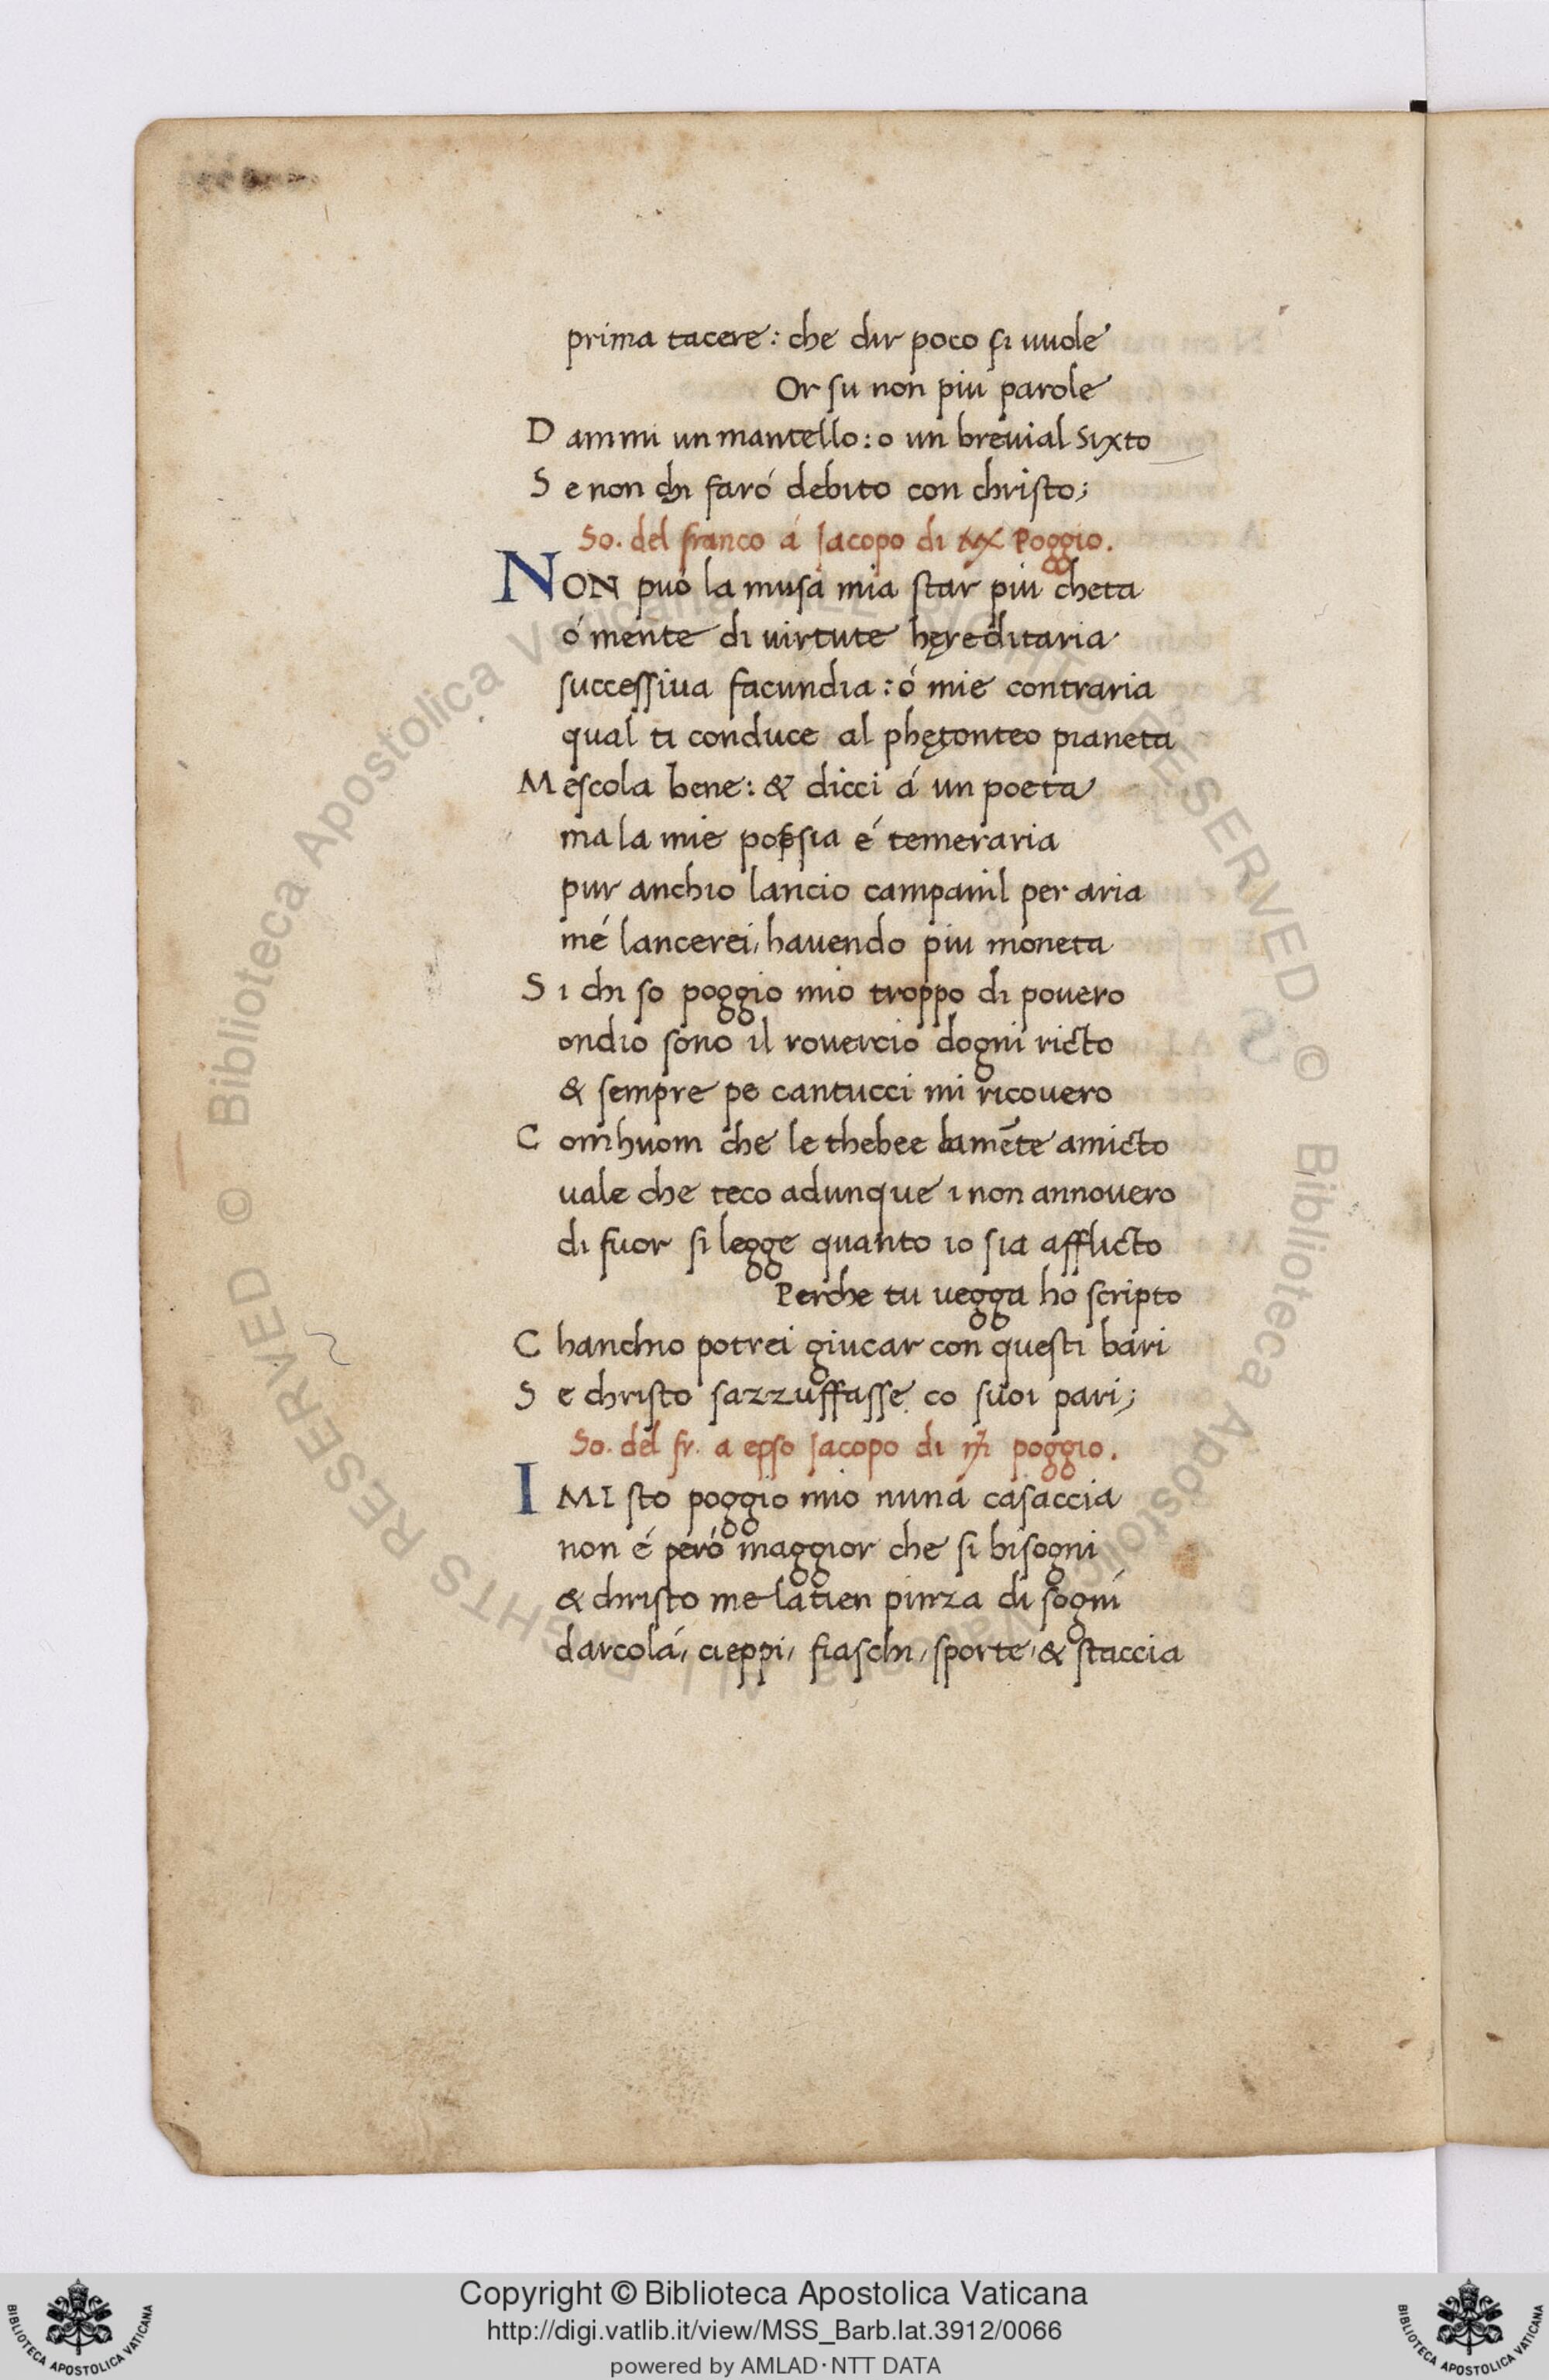 prima tacere: che dir poco si vuole
Or su non piu parole
D ammi un mantello: o un brevial sixto
S e non chi faró debito con christo;
So. del franco á Jacopo di Poggio.
NON puó la musa mia star piu cheta
ó mente di virtute hęreditaria
successiva facundia: ó mie contraria
qual ti conduce al phętonteo pianeta
M escola bene: & dicci á un poeta
ma la mie poesia é temeraria
pur anchio lancio campanil per aria
mé lancerei, havendo piu moneta
S i chi so poggio mio troppo di povero
ondio sono il rovercio dogni ricto
& sempre pe cantucci mi ricovero
C om huom che le thebee lamēte amicto
vale che teco adunque i non annovero
di fuor si legge quanto io sia afflicto
Perche tu vegga ho scripto
C hanchio potrei giucar con questi bari
S e christo sazzuffasse co suoi pari;
So. del fr. a epso Jacopo di poggio.
I MI sto poggio mio nuna casaccia
non é peró maggior che si bisogni
& christo me la tien pinza di sogni
darcolá, cieppi, fiaschi, sporte, & staccia
Copyright © Biblioteca Apostolica Vaticana
http://digi.vatlib.it/view/MSS_Barb.lat.3912/0066
powered by AMLAD·NTT DATA
BIBLIOTECA APOSTOLICA VATICANA
BIBLIOTECA APOSTOLICA VATICANA
© Biblioteca Apostolica Vaticana ALL RIGHTS RESERVED © Biblioteca Apostolica Vaticana ALL RIGHTS RESERVED